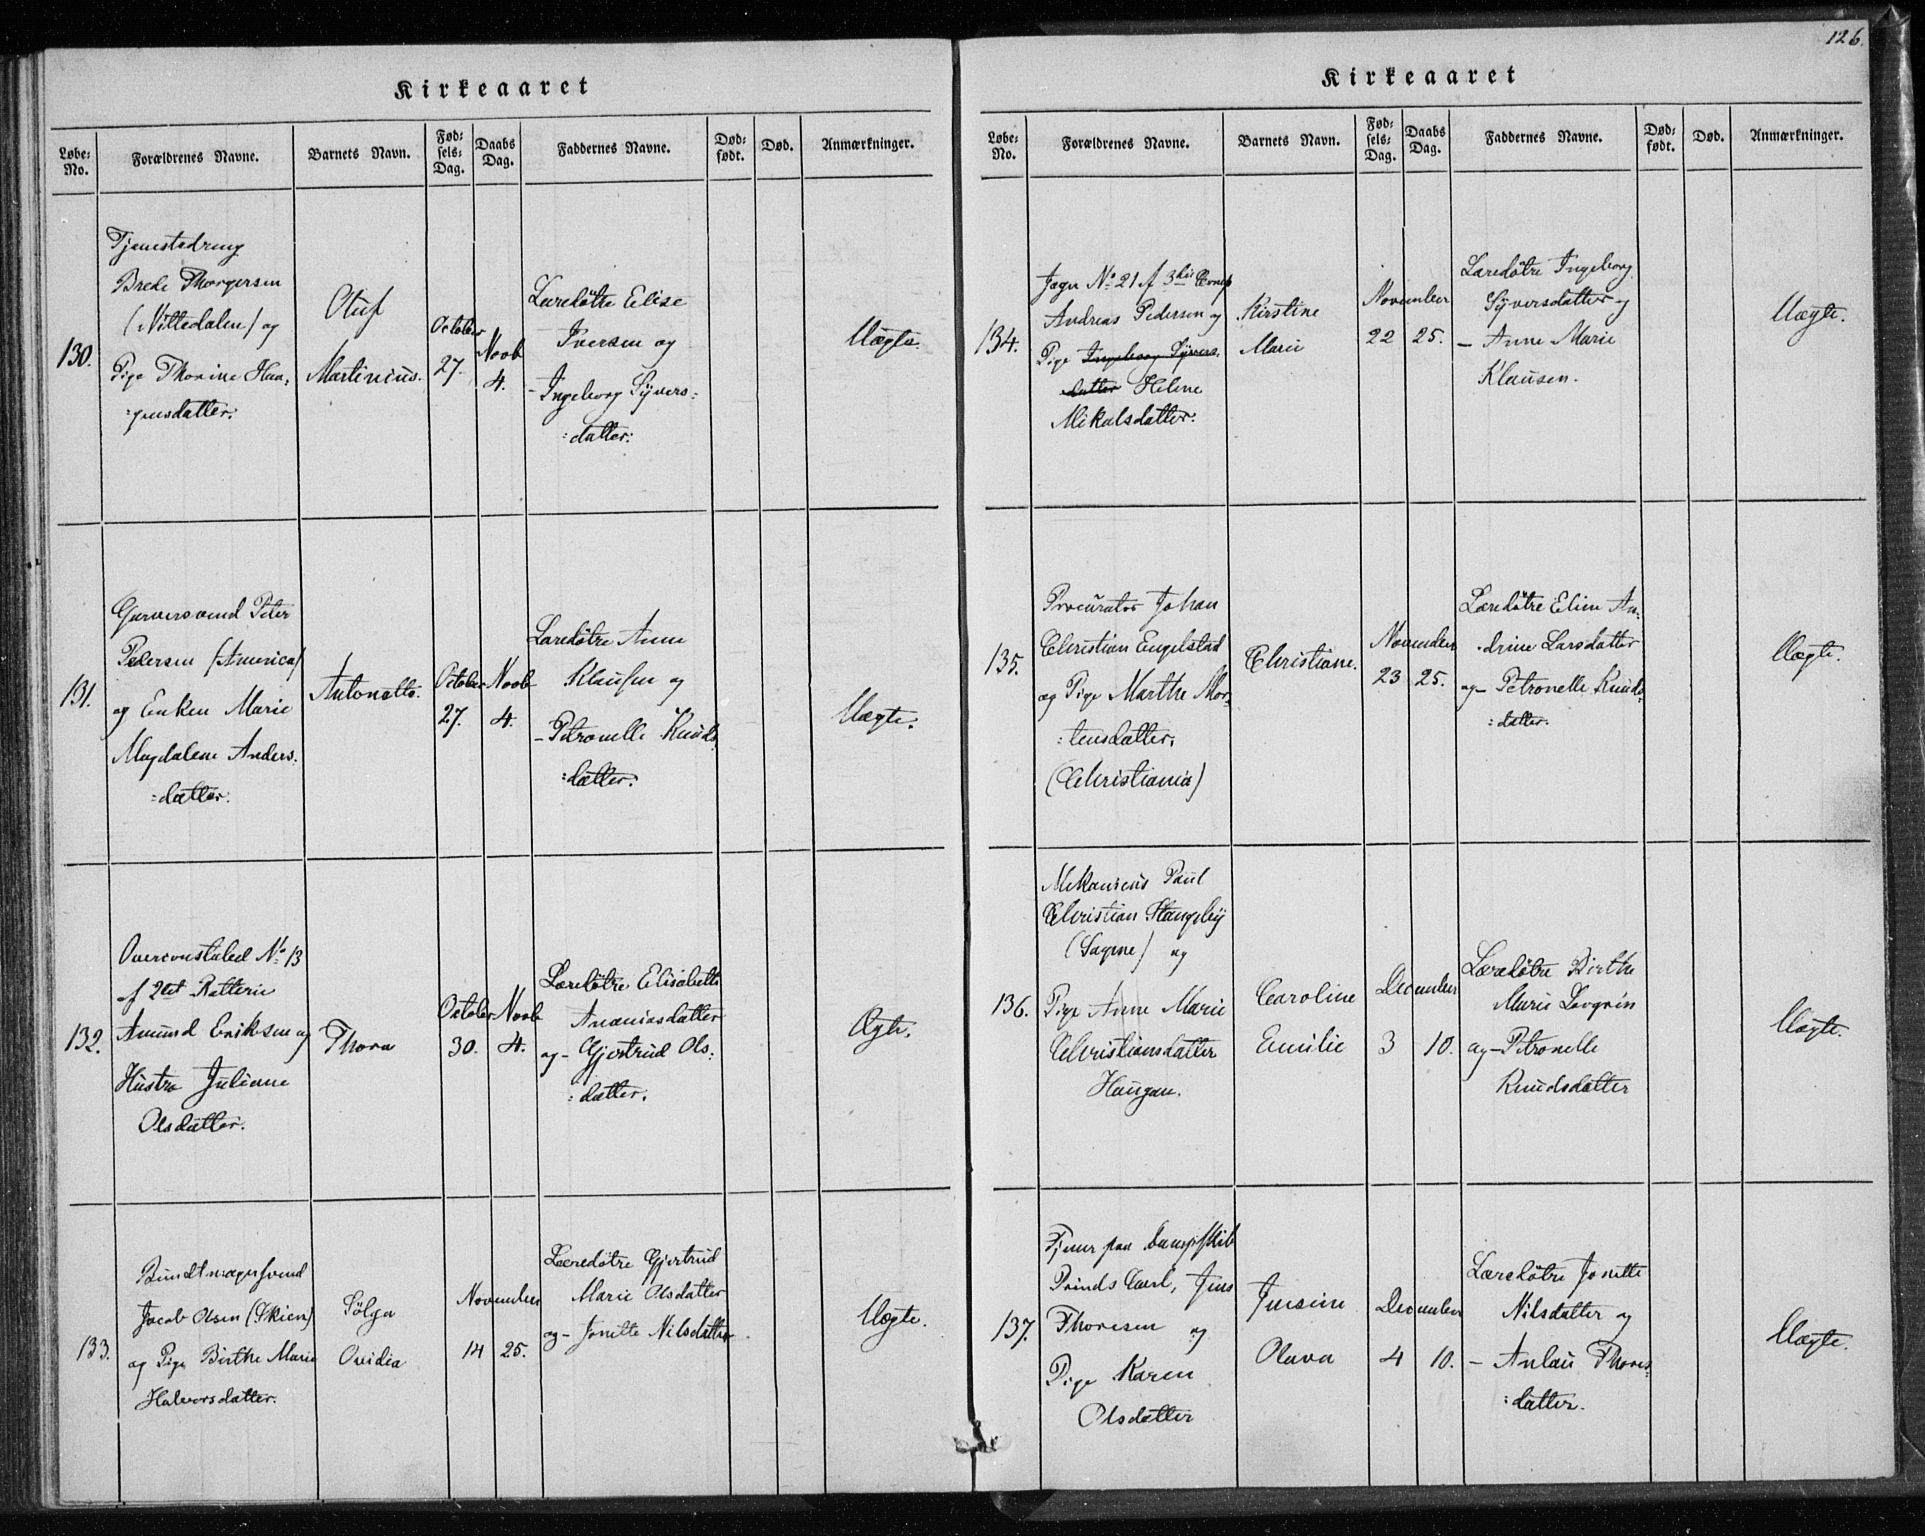 Kirkeaaret
Løbe-No. Forældrenes Navne. Barnets Navn. Fødsels-Dag. Daabs Dag. Faddernes Navne. Dødfødt. Død. Anmærkninger.
130.
Tjenestedreng
Brede Thorgersen
(Nittedalen) og
Pige Thorine Haa-
gensdatter.
Oluf
Martinius.
October
27.
Novb
4.
Læredøtre Elise
Iversen og
- Ingeborg Syvers:
:datter:
Uægte.
131.
Garversvend Peter
Pedersen (America)
og Enken Marie
Magdalene Anders:
:datter.
Antonette.
October
27.
Novb
4.
Læredøtre Anne
Klausen og
- Petronelle Knuds
:datter:
Uægte.
132.
Overconstabel No 13
af 2det Batterie
Amund Eriksen og
Hustro Juliane
Olsdatter.
Thora
October
30.
Novb
4.
Læredøtre Elisabeth
Ananiasdatter
og - Gjertrud Ols:
:datter.
Ægte.
133.
Bundtmagersvend
Jacob Olsen (Skien)
og Pige Birthe Marie
Halvorsdatter.
Sølga
Ovidia
November
14 25.
Læredøtre Gjertrud
Marie Olsdatter
og - Jonette Nilsdatter
Uægte.
126.
Kirkeaaret
Løbe-No. Forældrenes Navne. Barnets Navn. Fødsels-Dag. Daabs Dag. Faddernes Navne. Dødfødt. Død. Anmærkninger.
134.
Jæger No 21 af 3die Comp
Andreas Pedersen og
Pige Ingeborg Syvers.
datter Helene
Mikalsdatter:
Kirstine
Marie
November
22 25.
Læredøtre Ingeborg
Syversdatter og
- Anne Marie
Klausen.
Uægte.
135.
Procurator Johan
Christian Engelstad
og Pige Marthe Mor:
:tensdatter.
(Christiania)
Christiane.
November
23 25.
Læredøtre Eline An-
drine Larsdatter
og - Petronelle Knuds:
:datter.
Uægte.
136.
Mekanicus Paul
Christian Stangeby
(Sagene) og
Pige Anne Marie
Christiansdatter
Haugan.
Caroline
Emilie
December
3 10.
Læredøtre Birthe
Marie Lovgrén
og - Petronelle
Knudsdatter
Uægte.
137.
Tjener paa Dampskib
Prinds Carl, Jens
Thoresen og
Pige Karen
Olsdatter
Jensine
Olava
December
4 10.
Læredøtre Jonette
Nilsdatter og
- Anlau Thores:
:datter.
Uægte.